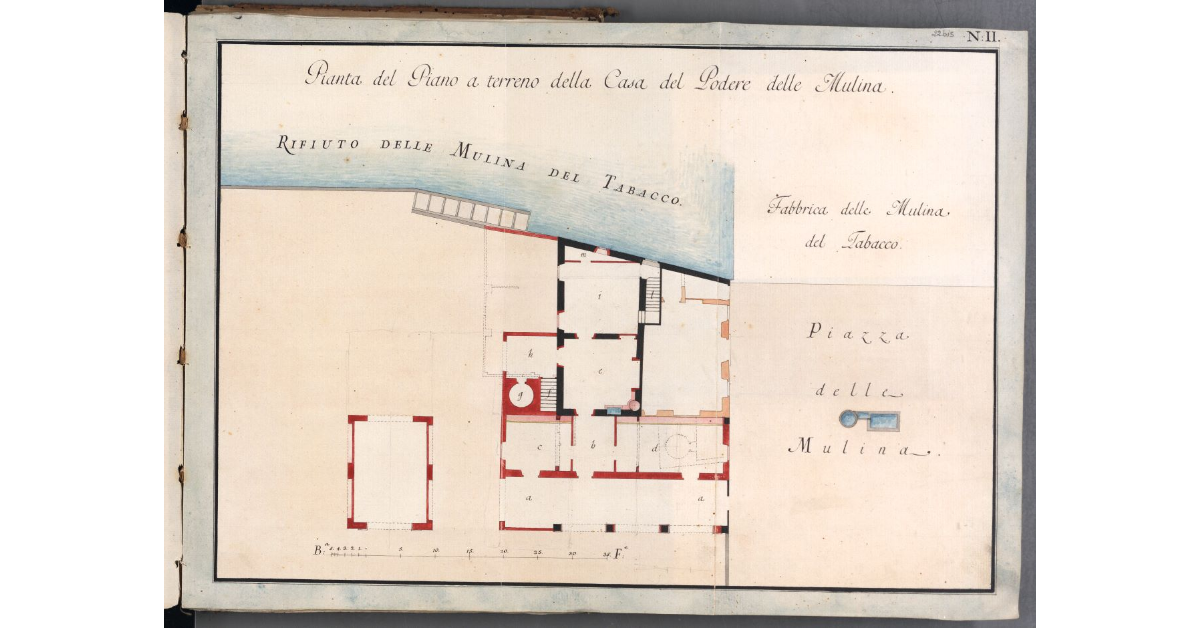 N: II.
Pianta del Piano a terreno della Casa del Podere delle Mulina.
RIFIUTO DELLE MULINA DEL TABACCO.
Fabbrica delle Mulina
del Tabacco.
m
i
l
Piazza
h
e
g f
delle
c b d
Mulina.
a a
B.a 5. 4. 3. 2. 1. 5. 10. 15. 20. 25. 30. F.e